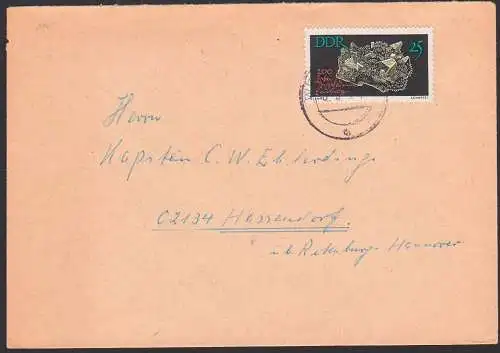 DDR 25
200
Herrn
Kapitän C. W.
02134 Hassendorf.
üb. Rotenburg-Hannover